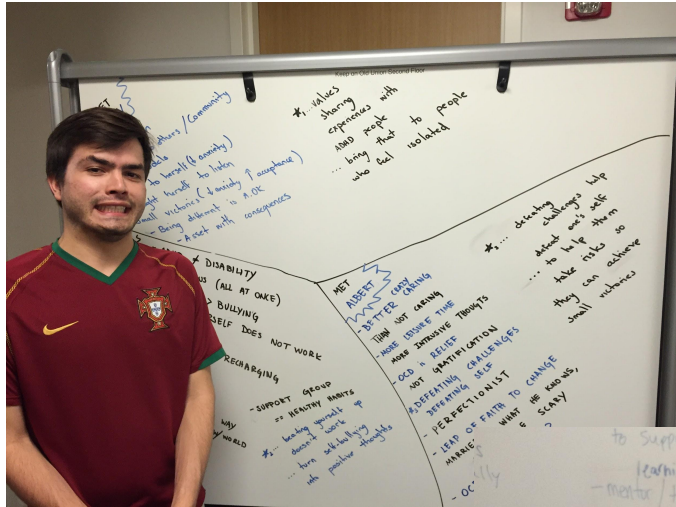 Keep on Old Union Second Floor
MET
others/Community
to herself (↓ anxiety)
herself to listen
small victories (↓ anxiety ↑ acceptance)
- Being different is A.OK
- Asset with consequences
*,...values
sharing
experiences with
ADAD people
... bring that to people
who feel isolated
≠ DISABILITY
(ALL AT ONCE)
BULLYING
DOES NOT WORK
RECHARGING
- SUPPORT GROUP
== HEALTHY HABITS
*,... beating yourself up
doesn't work
... turn self-bullying
into positive thoughts
WAY
WORLD
MET
ALBERT
- BETTER CRAZY
THAN NOT CARING
- MORE LEISURE TIME
MORE INTRUSIVE THOUGTS
- OCD is RELIEF
NOT GRATIFICATION
*,DEFEATING CHALLENGES
DEFEATING SELF
- PERFECTIONIST
- LEAP OF FAITH TO CHANGE
WHAT HE KNOWS,
SCARY
*,... defeating
challenges help
defeat one's self
... to help them
take risks so
they can achieve
small victories
to
- mentor/
PORTUGAL